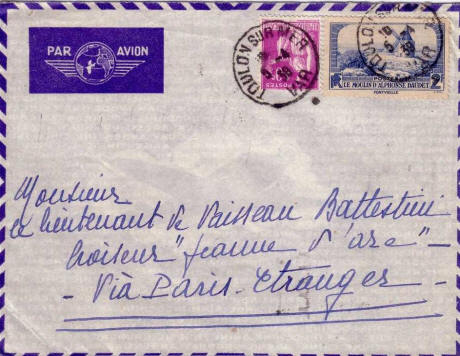 PAR AVION
TOULON SUR MER
VAR
POSTES
TOULON
VAR
POSTES
2
LE MOULIN D'ALPHONSE DAUDET
FONTVIEILLE
Monsieur
le Lieutenant de Vaisseau Battestini
Croiseur "Jeanne d'Arc" –
– Via Paris-Etranger –